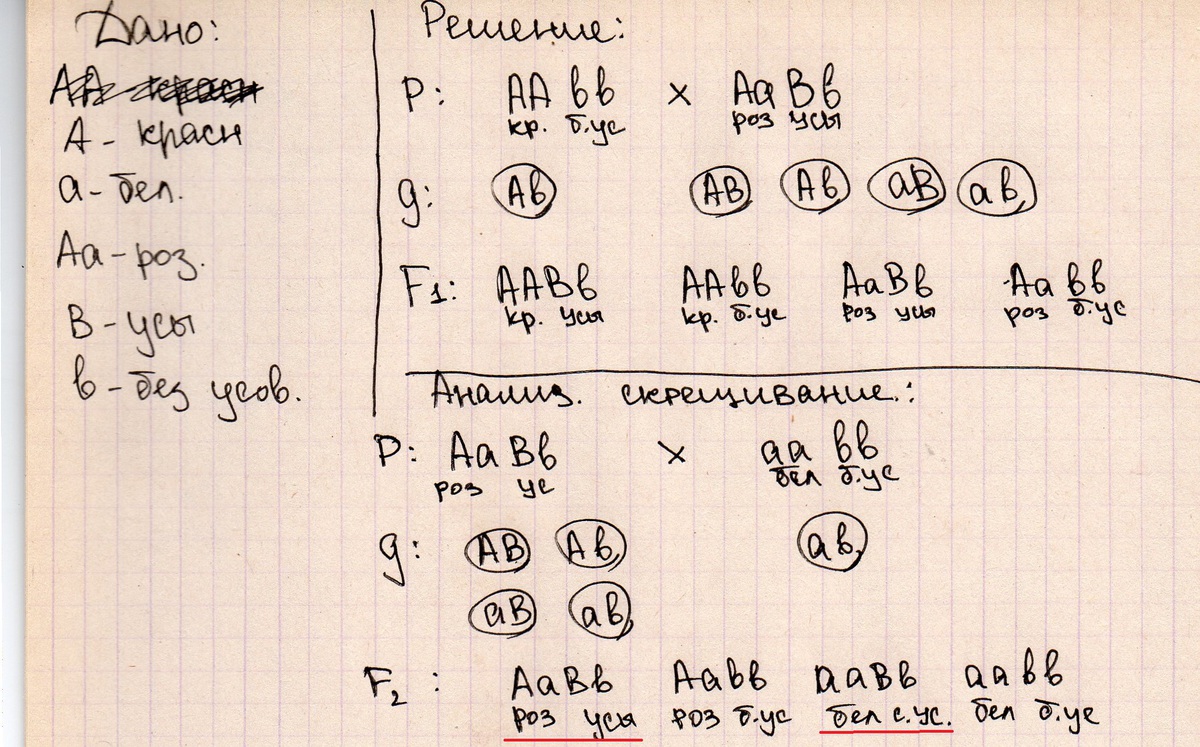 Дано:
А - красн
а - бел.
Аа - роз.
В - усы
в - без усов.
Решение:
Р: АА вв × Аа Вв
кр. б.ус роз усы
g: Ав АВ Ав аВ ав
F1: ААВв ААвв АаВв Аа вв
кр. усы кр. б.ус роз усы роз б.ус
Анализ. скрещивание.:
Р: Аа Вв × аа вв
роз ус бел б.ус
g: АВ Ав ав
аВ ав
F2: АаВв Аавв ааВв аа вв
роз усы роз б.ус бел с.ус. бел б.ус